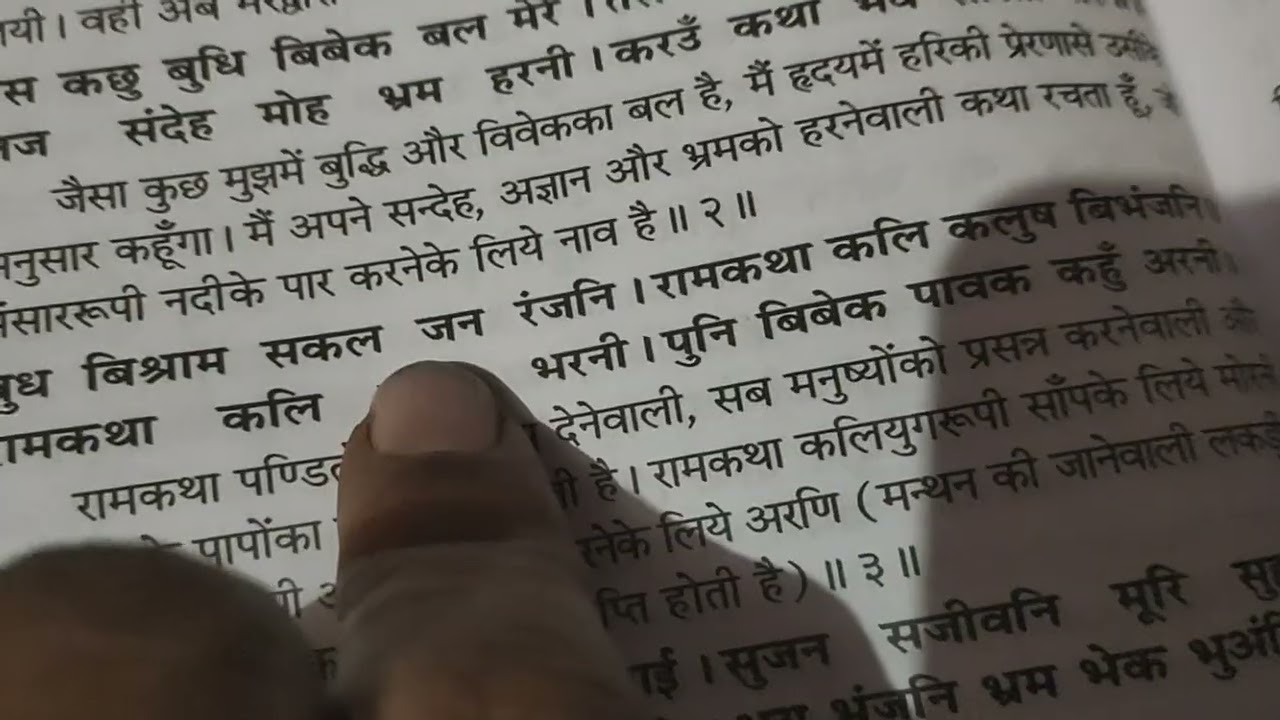 यी । वही अब
कछु बुधि बिबेक बल मेरें ।
संदेह मोह भ्रम हरनी । करउँ कथा
जैसा कुछ मुझमें बुद्धि और विवेकका बल है, मैं हृदयमें हरिकी प्रेरणासे उसीके
नुसार कहूँगा । मैं अपने सन्देह, अज्ञान और भ्रमको हरनेवाली कथा रचता हूँ,
संसाररूपी नदीके पार करनेके लिये नाव है ॥ २ ॥
बुध बिश्राम सकल जन रंजनि । रामकथा कलि कलुष बिभंजनि ।
रामकथा कलि भरनी । पुनि बिबेक पावक कहुँ अरनी ।
रामकथा पण्डित देनेवाली, सब मनुष्योंको प्रसन्न करनेवाली औ
पापोंका ी है । रामकथा कलियुगरूपी साँपके लिये मोरनी
रनेके लिये अरणि ( मन्थन की जानेवाली लकड़ी
प्ति होती है ) ॥ ३ ॥
गाई । सुजन सजीवनि मूरि सु
भंजनि भ्रम भेक भुअंगि